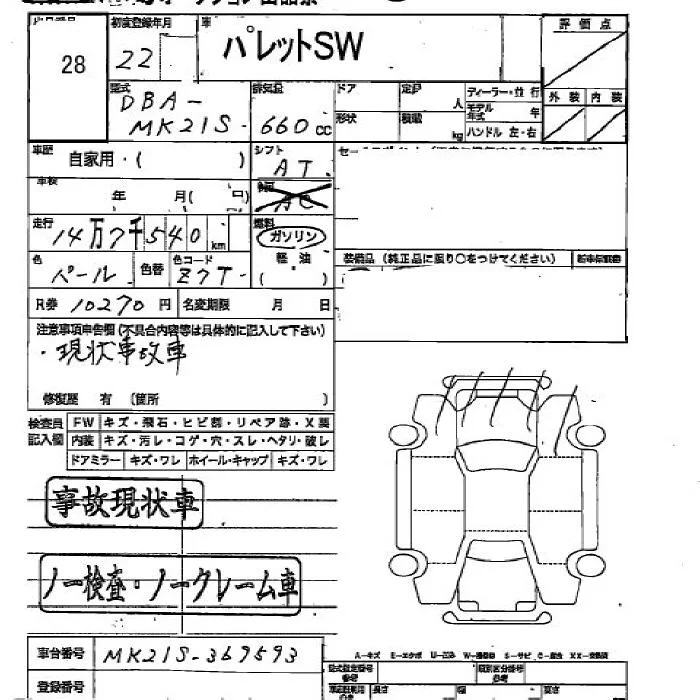 28
初度登録年月
22
車
パレットSW
評価点
型式
DBA-
MK21S
排気量
660cc
ドア
定員
人
形状
積載
kg
ディーラー・並行
モデル年式 年
ハンドル 左・右
外装 内装
車歴
自家用・( )
シフト
AT
車検
年 月( 日)
AC
走行
14万7千540km
燃料
ガソリン
軽油
( )
色
パール
色替
色コード
Z7T
装備品(純正品に限り○をつけてください)
新車保証書
R券 10270円
名変期限 月 日
注意事項申告欄(不具合内容等は具体的に記入して下さい)
・現状事故車
修復歴 有 (箇所 )
検査員記入欄
FW キズ・飛石・ヒビ割・リペア跡・X要
内装 キズ・汚レ・コゲ・穴・スレ・ヘタリ・破レ
ドアミラー キズ・ワレ ホイール・キャップ キズ・ワレ
事故現状車
ノー検査・ノークレーム車
車台番号 MK21S-369593
登録番号
A-キズ E-エクボ U-凹み W-補修跡 S-サビ C-腐食 XX-交換済
型式指定番号
類別区分番号
長さ 幅 高さ